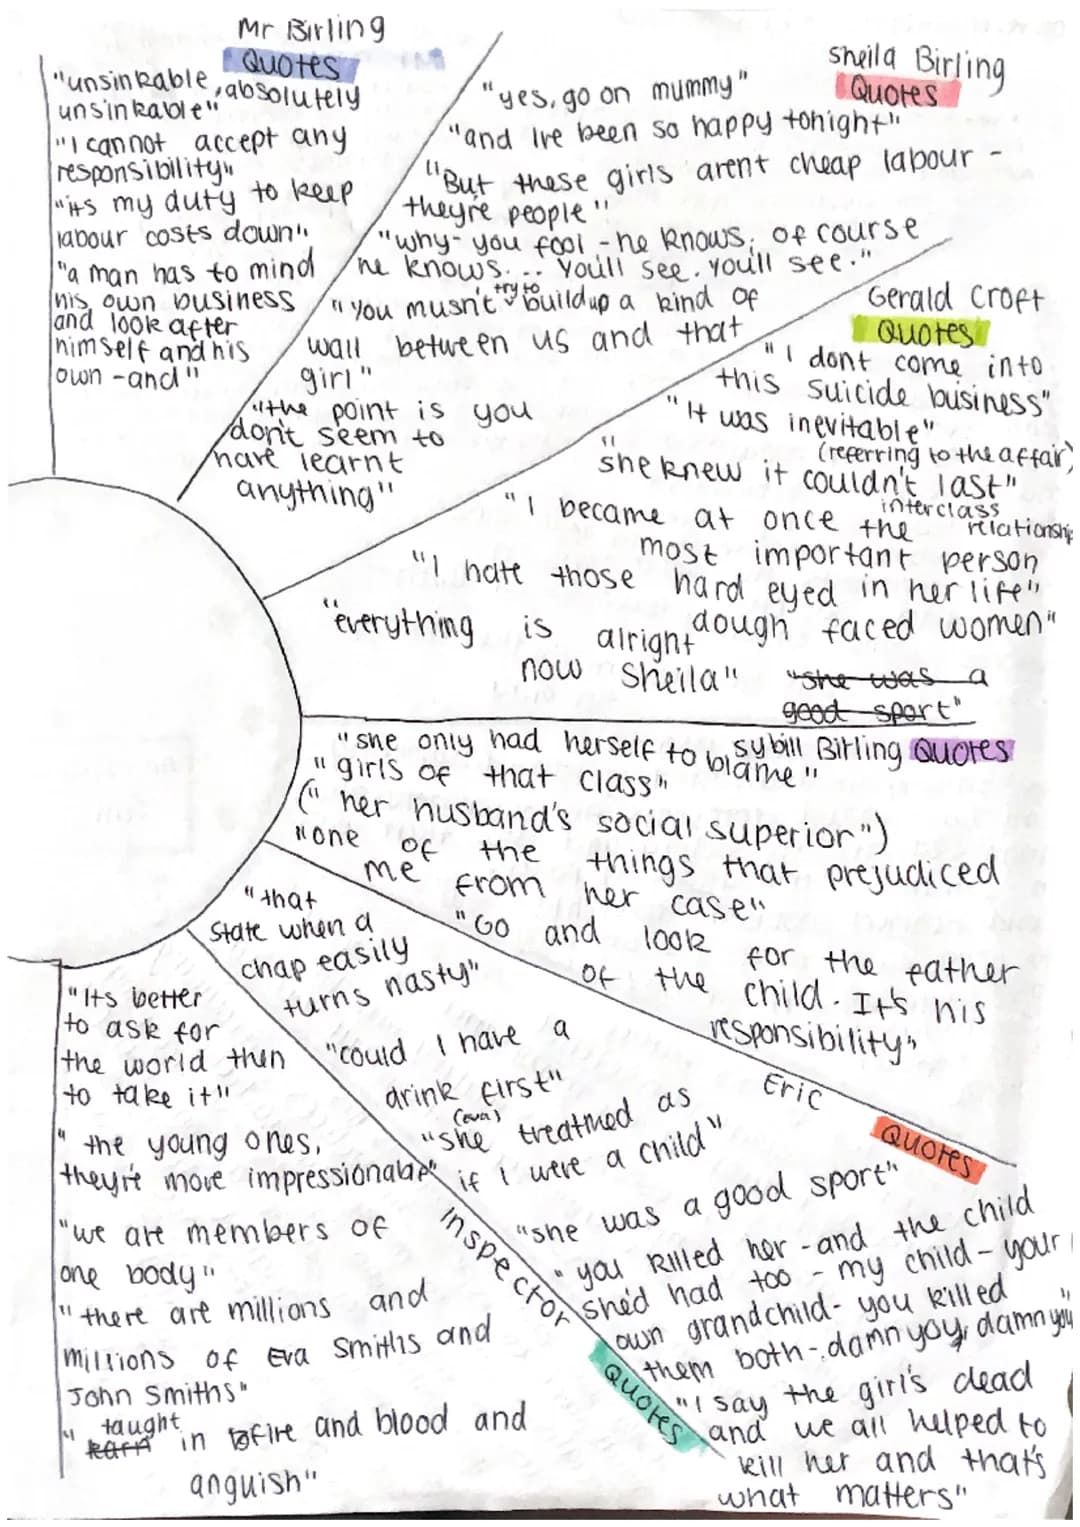 Mr Birling
Quotes
"unsinkable, absolutely
unsinkable"
"I cannot accept any
responsibility"
"its my duty to keep
labour costs down"
"a man has to mind
his own business
and look after
himself and his
own - and"
Sheila Birling
Quotes
"yes, go on mummy"
"and I've been so happy tonight"
"But these girls arent cheap labour -
they're people"
"why - you fool - he knows, of course
he knows.... You'll see. you'll see."
"You musn't try to build up a kind of
wall between us and that
girl"
"the point is you
don't seem to
have learnt
anything"
Gerald Croft
Quotes
"I dont come into
this suicide business"
"It was inevitable"
(referring to the affair)
"she knew it couldn't last"
interclass
relationship
"I became at once the
most important person
in her life"
"I hate those hard eyed
dough faced women"
"everything is alright
now Sheila"
"she was a
good sport"
sybill Birling Quotes
"she only had herself to blame"
"girls of that class"
("her husband's social superior")
"one of the things that prejudiced
me from her case"
"Go and look for the father
of the child. It's his
responsibility"
Eric
Quotes
"that
state when a
chap easily
turns nasty"
"could I have a
drink first"
(eva)
"she treatmed as
if I were a child"
"she was a good sport"
"you killed her - and the child
she'd had too - my child - your
own grandchild - you killed
them both - damn you, damn you"
"I say the girl's dead
and we all helped to
kill her and that's
what matters"
Inspector
Quotes
"Its better
to ask for
the world then
to take it"
"the young ones,
they're more impressionable"
"we are members of
one body"
"there are millions and
millions of Eva Smiths and
John Smiths"
"taught in fire and blood and
anguish"